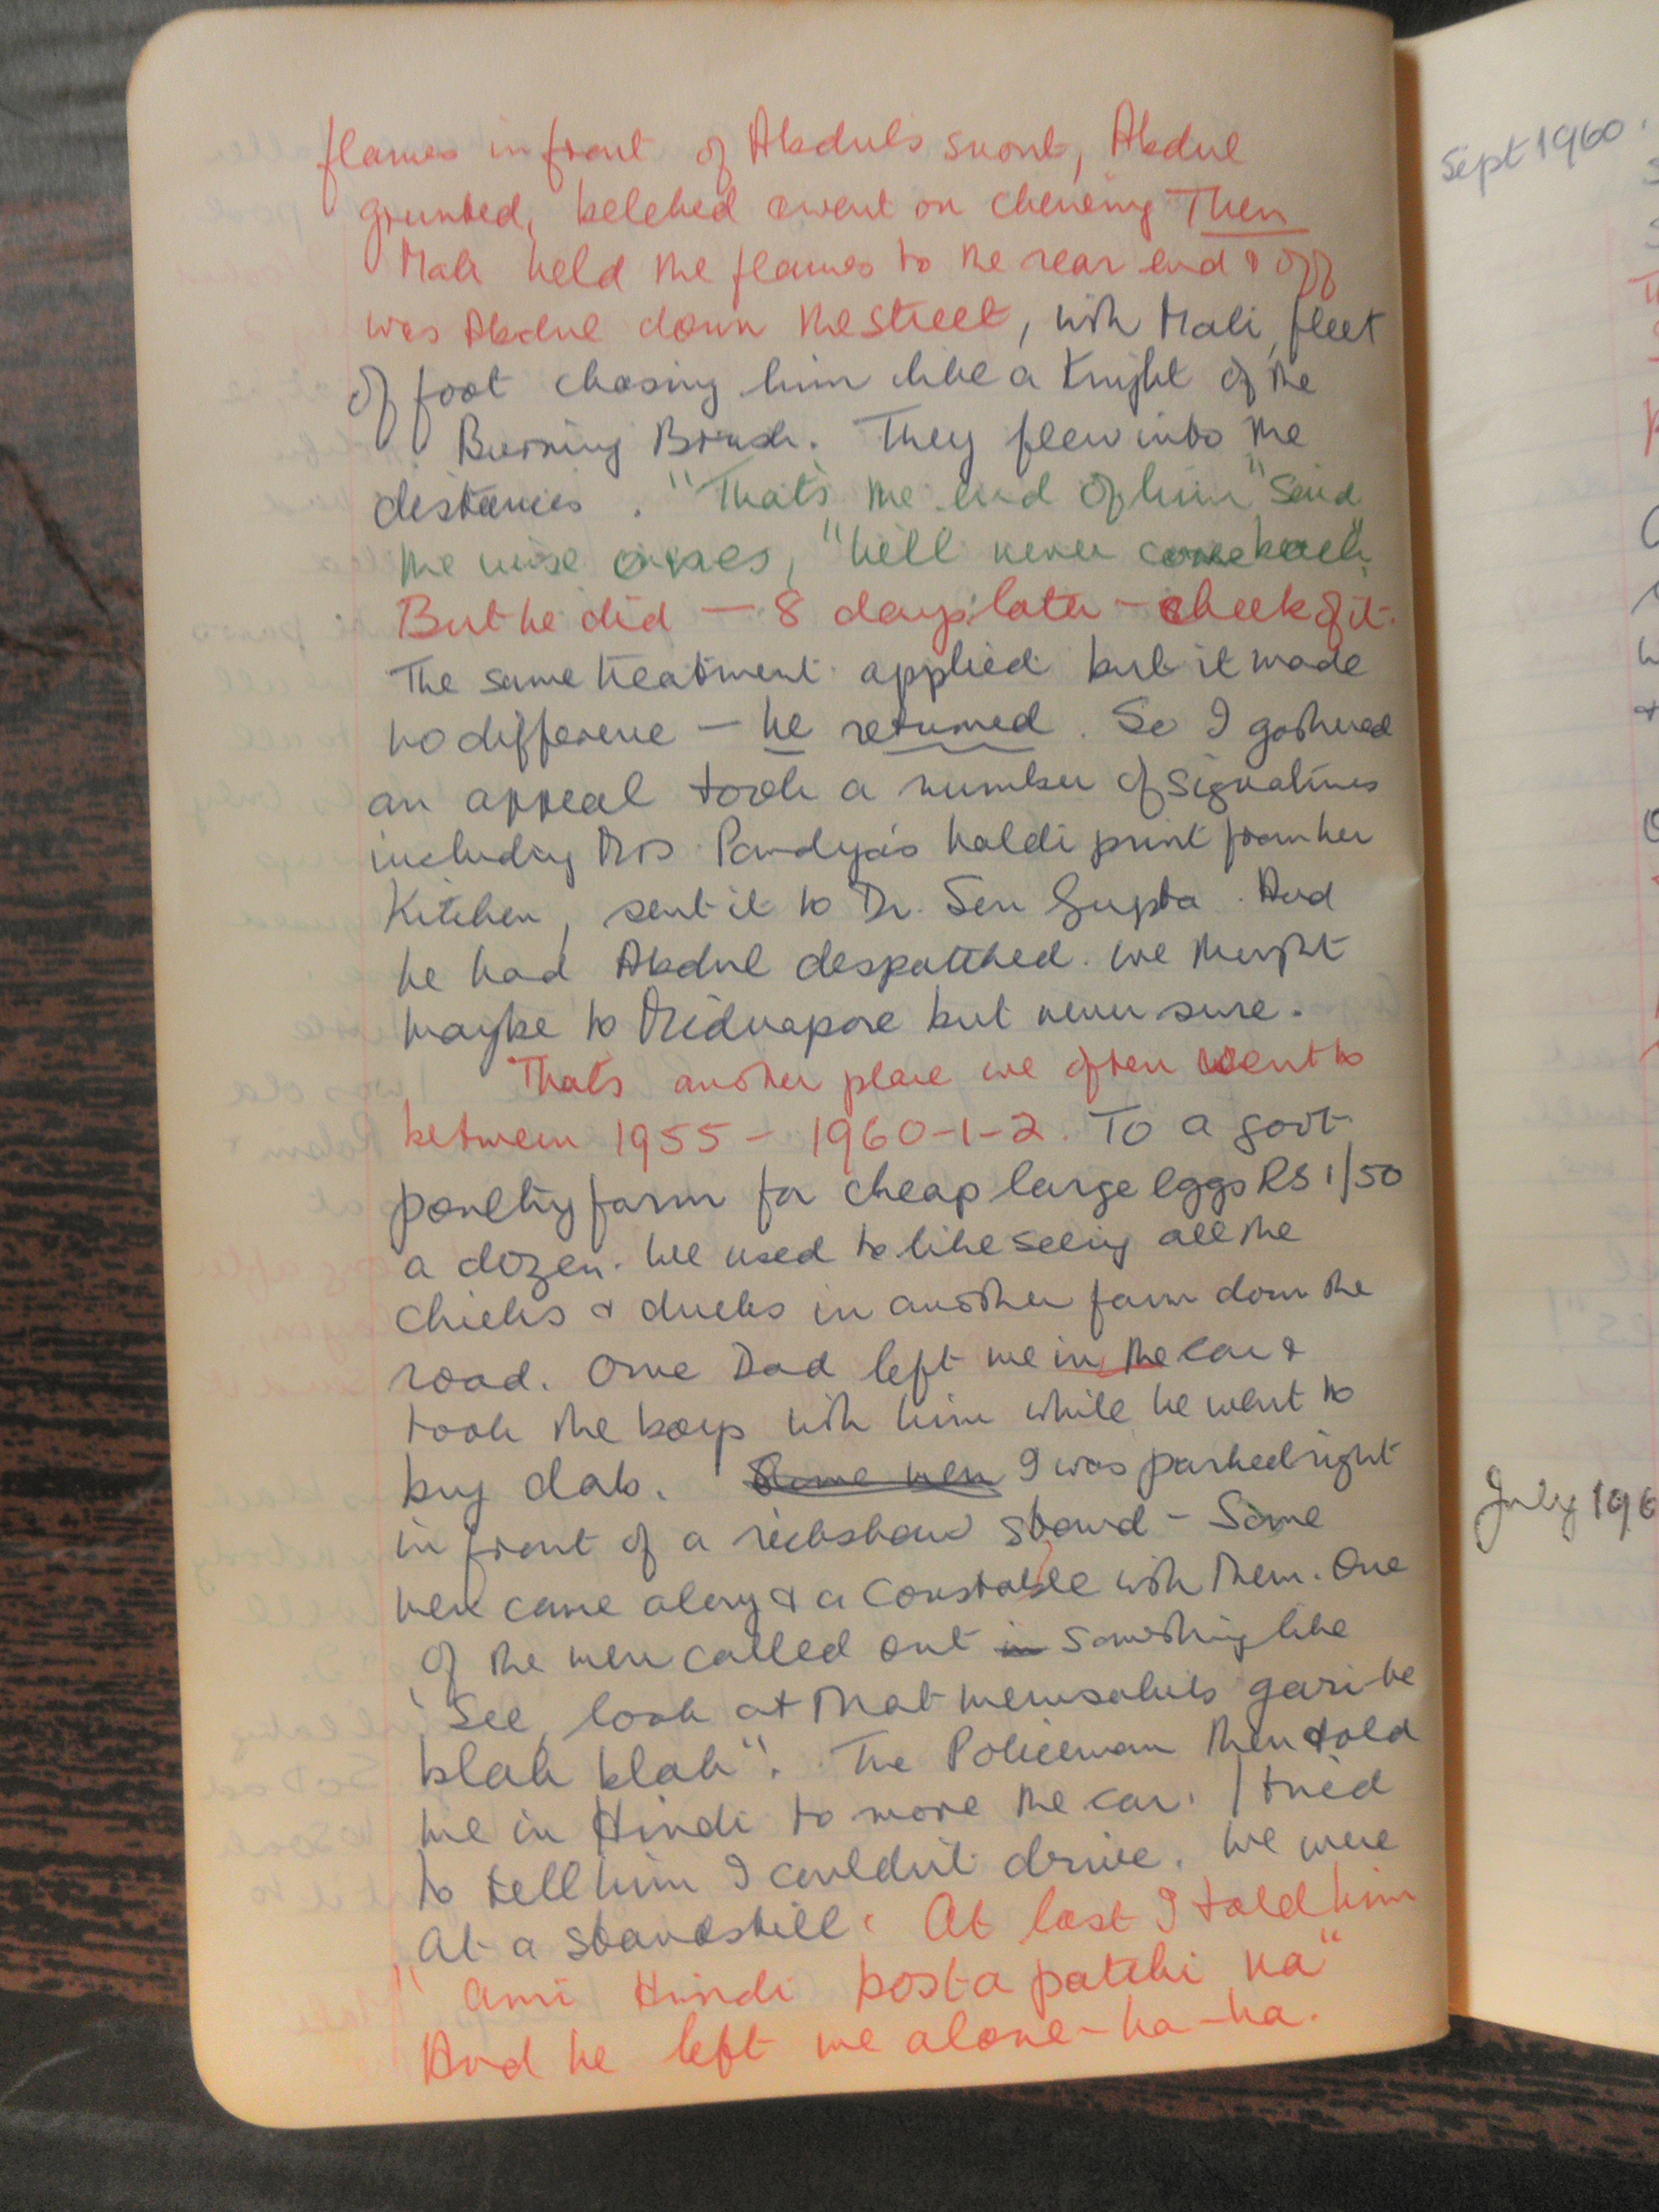 flames in front of Abdul's snout, Abdul
grunted, belched & went on chewing Then
Mali held the flames to the rear end & off
was Abdul down the street, with Mali, fleet
of foot chasing him like a Knight of the
Burning Brush. They flew into the
distances. "That's the end of him" said
the wise ones, "he'll never come back".
But he did — 8 days later — cheek of it.
The same treatment applied but it made
no difference — he returned. So I gathered
an appeal took a number of signatures
including Mrs Pandya's haldi print from her
Kitchen, sent it to Dr. Sen Gupta. And
he had Abdul despatched. We thought
maybe to Midnapore but never sure.
That's another place we often went to
between 1955 - 1960-1-2. To a govt
poultry farm for cheap large eggs RS 1/50
a dozen. We used to like seeing all the
chicks & ducks in another farm down the
road. Once Dad left me in the car &
took the boys with him while he went to
buy dab. Some men I was parked right
in front of a rickshaw stand - Some
men came along & a Constable with them. One
of the men called out in something like
"See, look at that memsahib's gari-he
blah blah". The Policeman then told
me in Hindi to move the car. I tried
to tell him I couldn't drive. We were
at a standstill. At last I told him
"ami Hindi bosta patchi na"
And he left me alone-ha-ha.
Sept 1960.
July 196